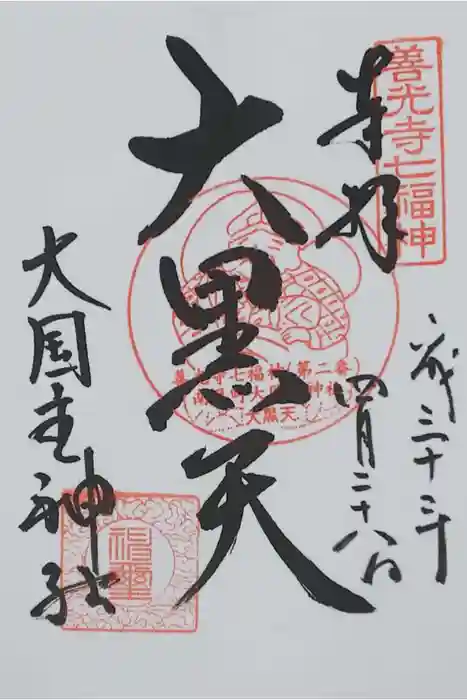 善光寺七福神
奉拝
平成三十三年
四月二十八日
大黒天
善光寺七福神(第二番)
南県町大国主神社
大黒天
大国主神社